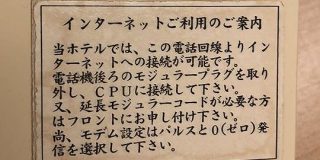 インターネットご利用のご案内
当ホテルでは、この電話回線よりイン
ターネットへの接続が可能です。
電話機後ろのモジュラープラグを取り
外し、ＣＰＵに接続して下さい。
又、延長モジュラーコードが必要な方
はフロントにお申し付け下さい。
尚、モデム設定はパルスと０(ゼロ)発
信を選択して下さい。